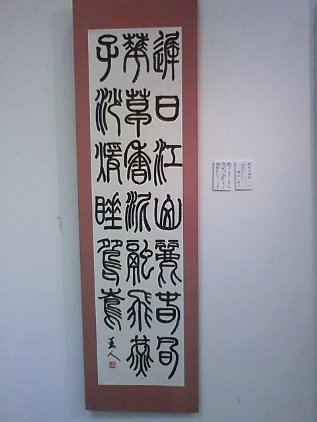 遲日江山麗春風
華草香泥融飛燕
子沙煖睡鴛鴦